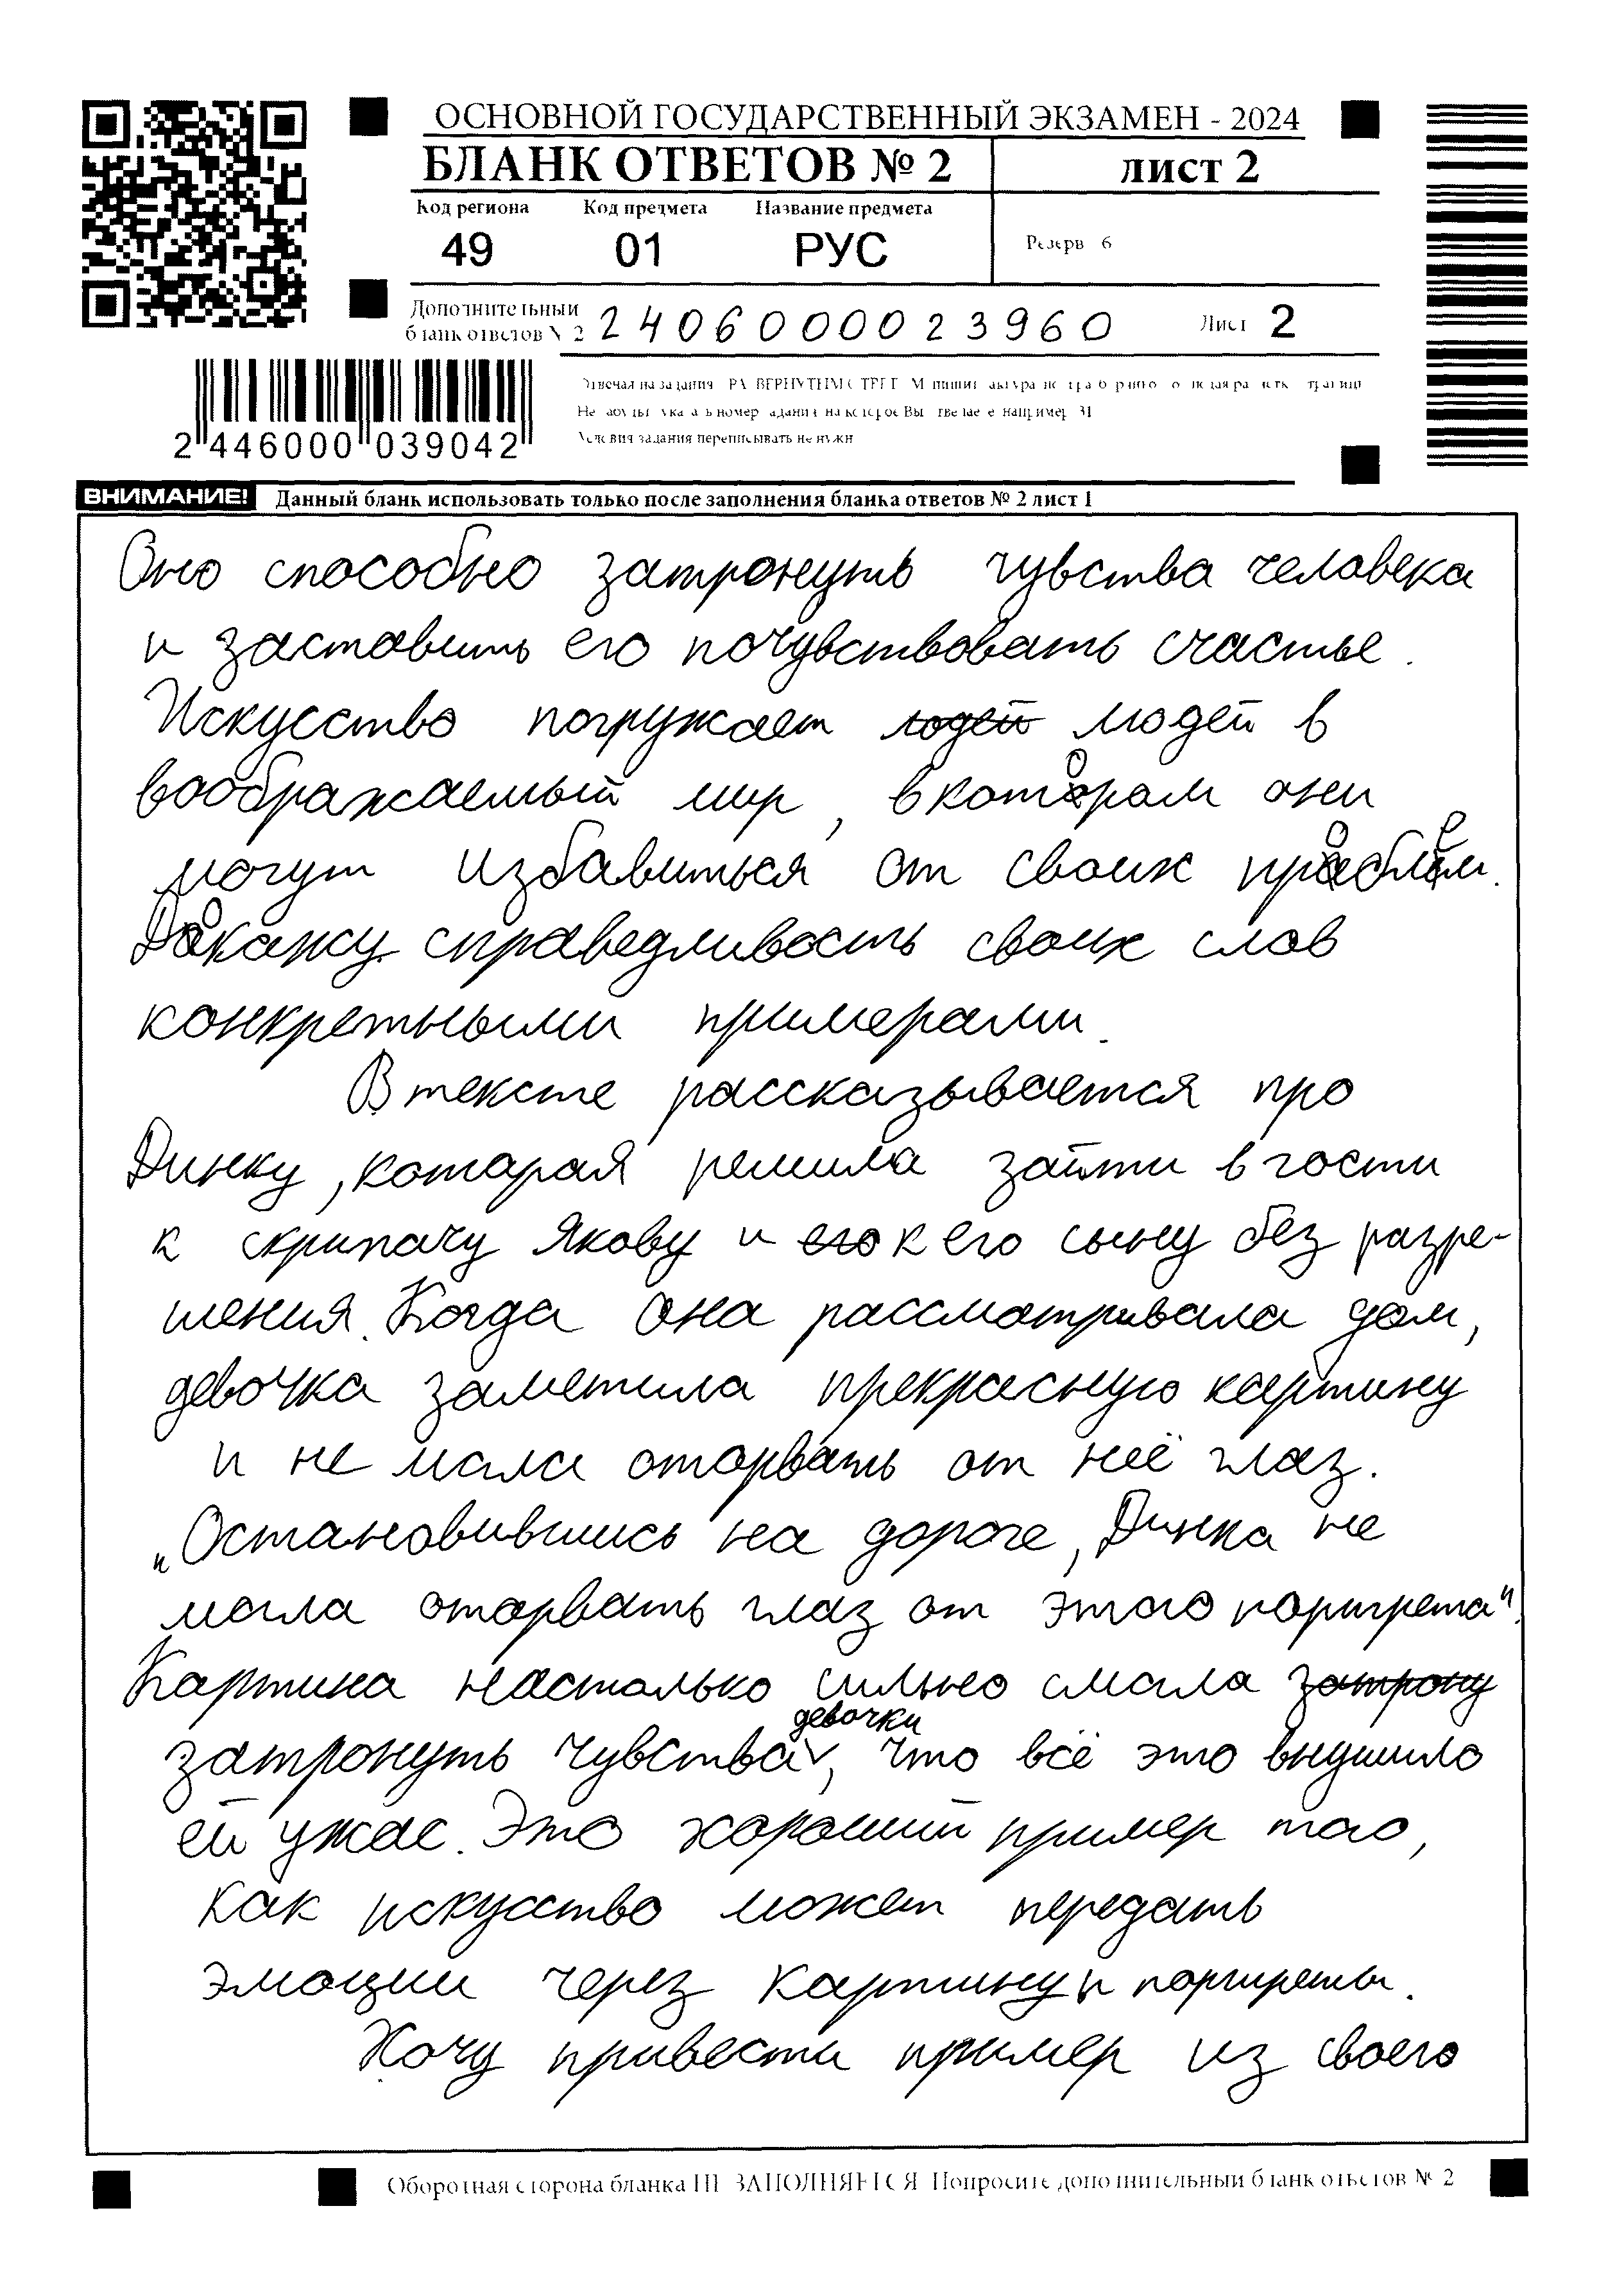 ОСНОВНОЙ ГОСУДАРСТВЕННЫЙ ЭКЗАМЕН - 2024
БЛАНК ОТВЕТОВ № 2
ЛИСТ 2
Код региона Код предмета Название предмета
49 01 РУС
Резерв 6
Дополнительный
бланк ответов № 2 2406000023960
Лист 2
2 446000 039042
Условия задания переписывать не нужн
ВНИМАНИЕ! Данный бланк использовать только после заполнения бланка ответов № 2 лист 1
Оно способно затронуть чувства человека
и заставить его почувствовать счастье.
Искусство погружает людей в
воображаемый мир, в котором они
могут избавиться от своих проблем.
Докажу справедливость своих слов
конкретными примерами.
В тексте рассказывается про
Динку, которая решила зайти в гости
к скрипачу Якову и к его сыну без разре-
шения. Когда она рассматривала дом,
девочка заметила прекрасную картину
и не могла оторвать от неё глаз.
„Остановившись на дороге, Динка не
могла оторвать глаз от этого портрета“.
Картина настолько сильно смогла
затронуть чувства девочки, что всё это внушило
ей ужас. Это хороший пример того,
как искусство может передать
эмоции через картину и портреты.
Хочу привести пример из своего
Оборотная сторона бланка НЕ ЗАПОЛНЯЕТСЯ Попросите дополнительный бланк ответов № 2